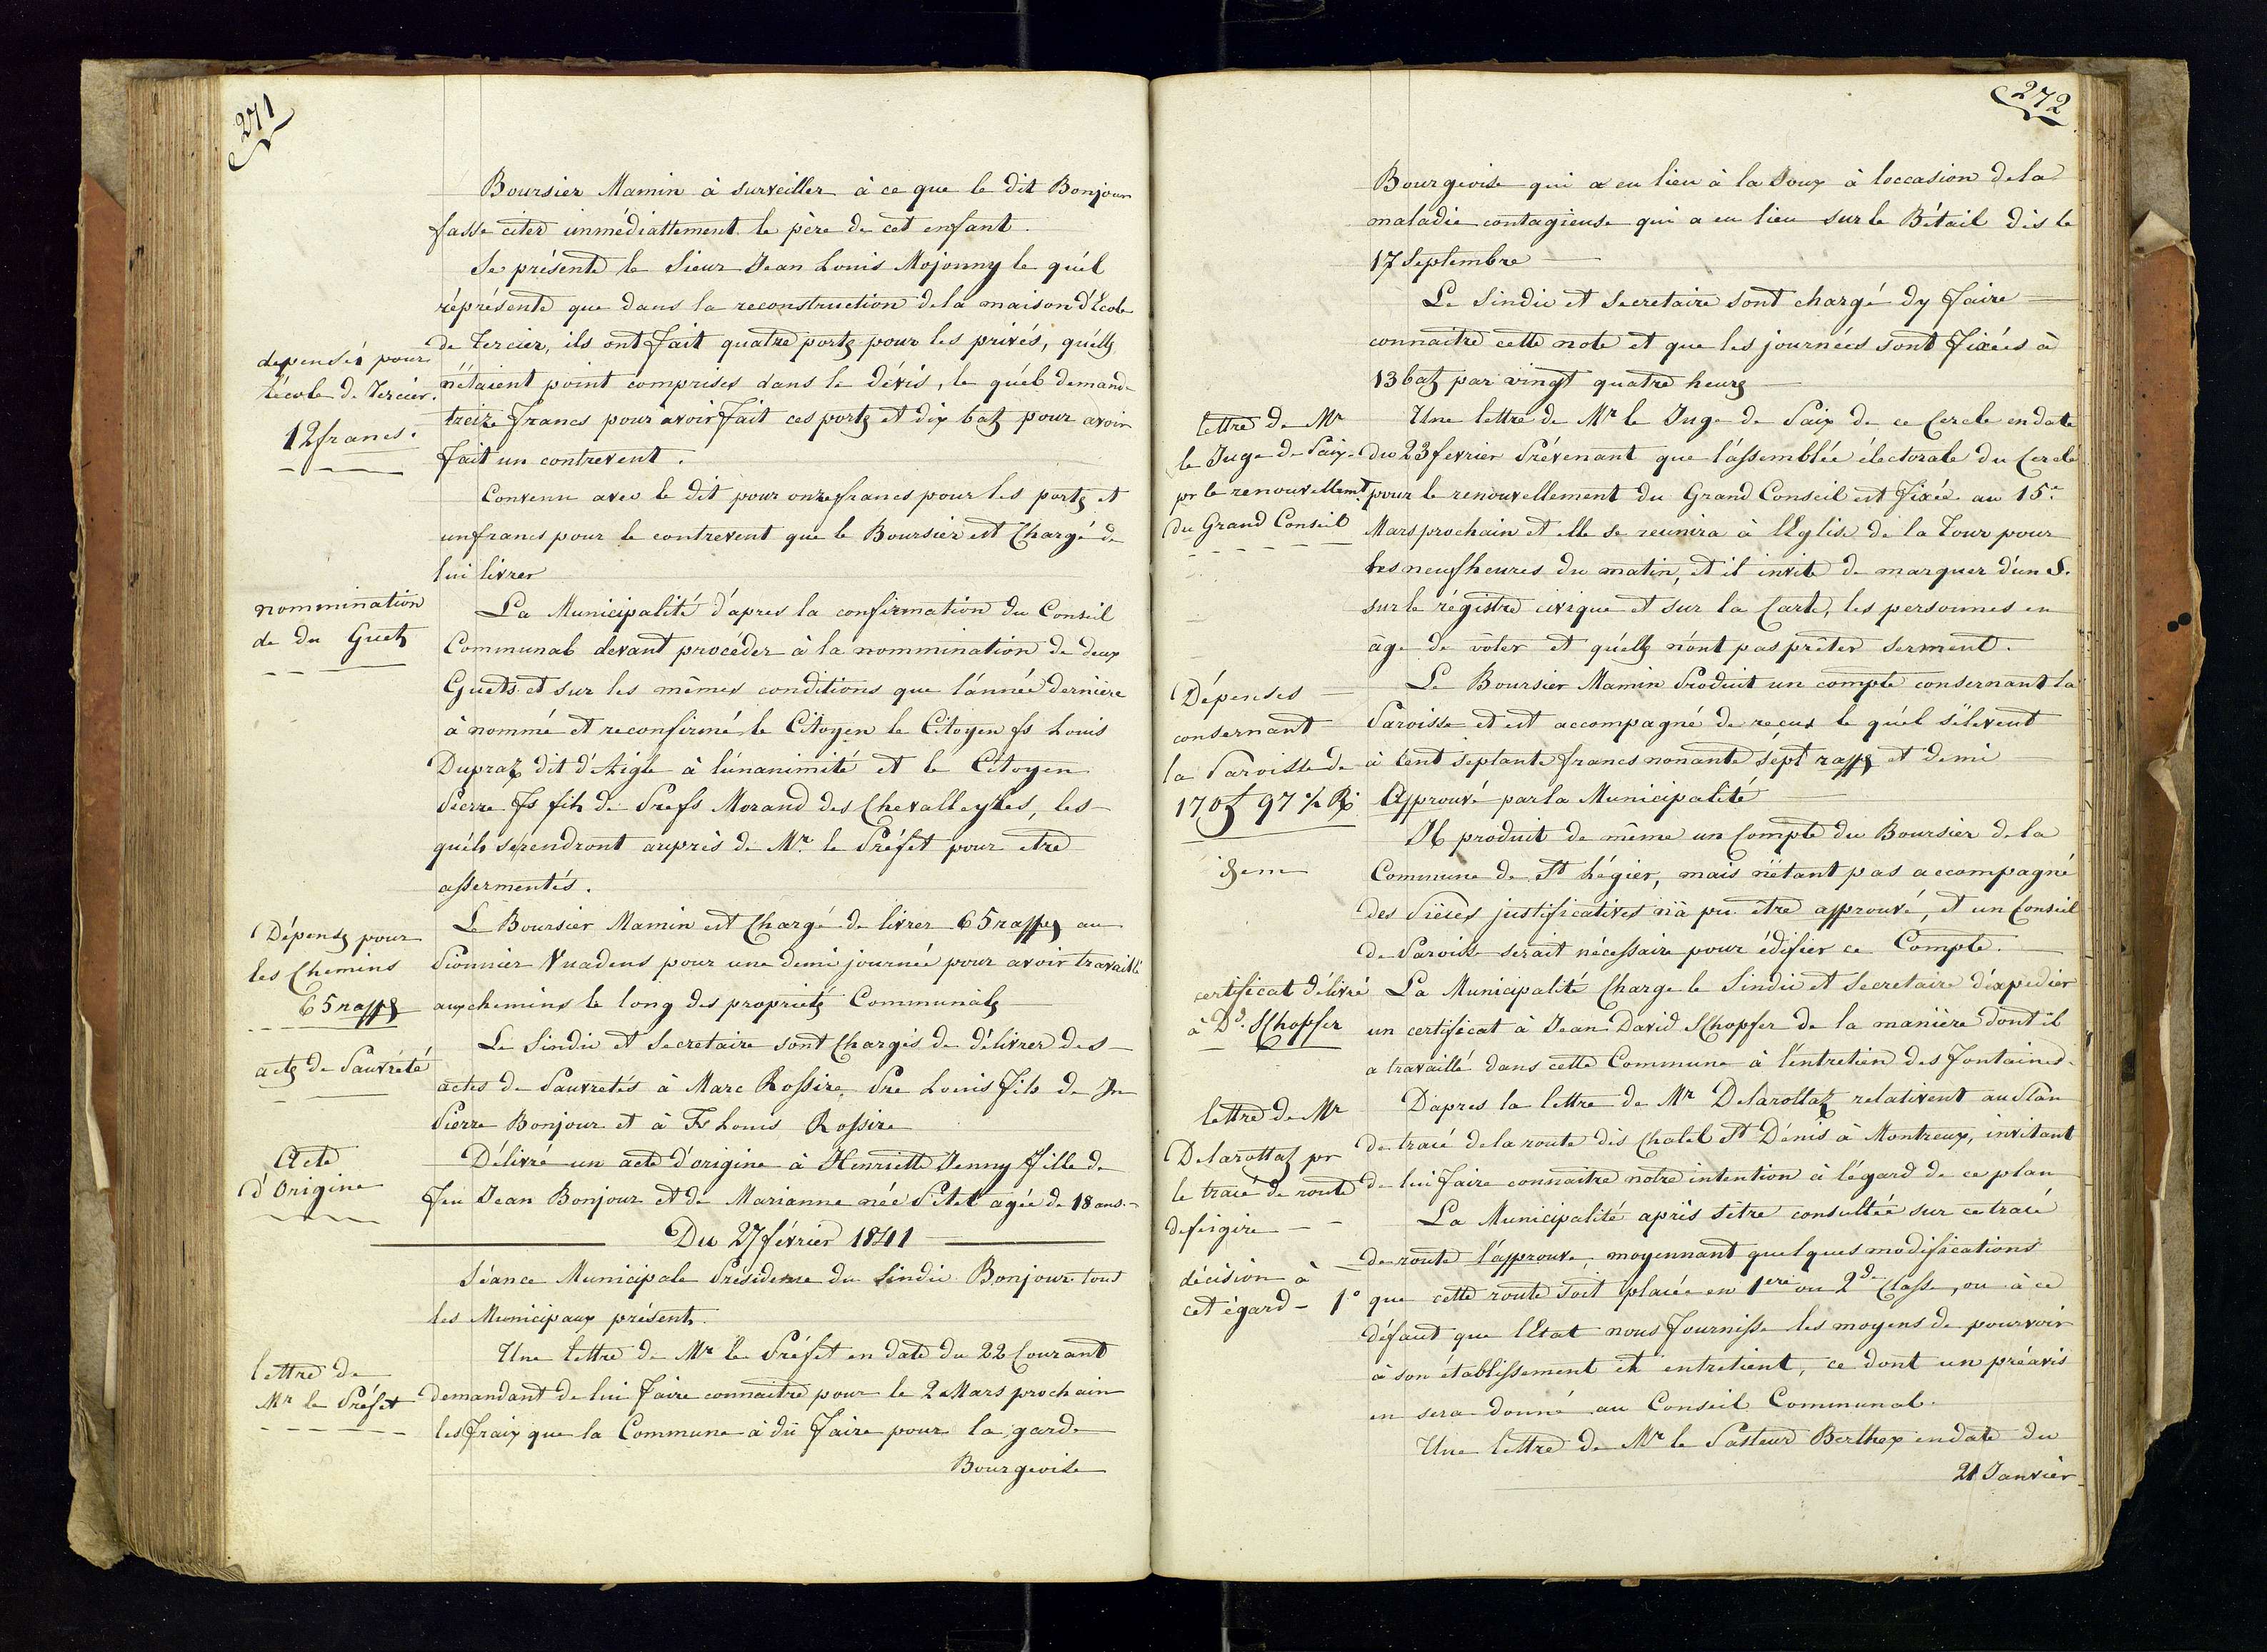 271
Boursier Mamin à surveiller à ce que le dit Bonjour
fasse citer immédiattement le père de cet enfant.
Se présente le Sieur Jean Louis Mojonny le quél
réprésente que dans la reconstruction de la maison d'Ecole
de Tercier, ils ont fait quatre portes pour les privés, qu'élles
dépensés pour
l'école de Tercier.
12 francs.
n'étaient point comprises dans le dévis, le quél demande
treize francs pour avoir fait ces portes et dix batz pour avoir
fait un contrevent.
Convenu avec le dit pour onze francs pour les portes et
un francs pour le contrevent que le Boursier est Chargé de
lui livrer
nommination
de du Guets
La Municipalité d'apres la confirmation du Conseil
Communal devant procéder à la nommination de deux
Guets et sur les mêmes conditions que l'année dernière
à nommé et reconfirmé le Citoyen le Citoyen fs Louis
Dupraz dit d'Aigle à l'unanimité et le Citoyen
Pierre fs fils de Prefs Morand des Chevalleyres, les
quéls se rendront auprès de Mr. le Préfet pour etre
assermentés.
Dépenses pour
les Chemins
65 rappes
Le Boursier Mamin est Chargé de livrer 65 rappes au
Pionnier Vuadens pour une demi journée pour avoir travaillé
aux chemins le long des propriétés Communales
actes de Pauvreté
Le Sindic et Secretaire sont Chargés de délivrer des
actes de Pauvretés à Marc Rossire, Pre Louis fils de Jn
Pierre Bonjour et à Fs Louis Rossire
Acte
d'Origine
Délivré un acte d'origine à Henriette Jenny fille de
feu Jean Bonjour et de Marianne née Pitet agée de 18 ans.
Du 27 février 1841
Séance Municipale Présidence du Sindic Bonjour tous
les Municipaux présents.
lettre de
Mr le Préfet
Une lettre de Mr le Préfet en date du 22 Courant
demandant de lui faire connaitre pour le 2 Mars prochain
les fraix que la Commune à dû faire pour la garde
Bourgeoise
272
Bourgeoise qui a eu lieu à la Joux à loccasion de la
maladie contagieuse qui a eu lieu sur le Bétail dès le
17 Septembre
Le Sindic et Secretaire sont chargé dy faire
connaitre cette note et que les journées sont fixées à
13 batz par vingt quatre heures
lettre de Mr
le Juge de Paix
pr le renouvellemt
du Grand Conseil
Une lettre de Mr le Juge de Paix de ce Cercle en date
du 23 fevrier Prévenant que l'assemblée électorale du Cercle
pour le renouvellement du Grand Conseil est fixée au 15e
Mars prochain et elle se reunira à lEglise de la Tour pour
les neuf heures du matin, et il invite de marquer d'un S.
sur le régistre civique et sur la Carte, les personnes en
âge de vôter et qu'élles n'ont pas prêter serment.
Dépenses
consernant
la Paroisse de
170 f 97 ½ R.
Le Boursier Mamin Produit un compte consernant la
Paroisse et est accompagné de reçus le quél s'élevent
à Cent septante francs nonante sépt rappes et demi
Approuvé par la Municipalité
idem
Il produit de même un Compte du Boursier de la
Commune de St Légier, mais n'étant pas accompagné
des Pièces justificatives n'à pu être approuvé, et un Conseil
de Paroisse serait nécessaire pour édifier ce Compte.
certificat délivré
à Dd. Schopfer
La Municipalité Charge le Sindic et Secretaire d'éxpedier
un certificat à Jean David Schopfer de la manière dont il
a travaillé dans cette Commune à l'entretien des fontaines.
lettre de Mr
Delarottaz pr
le tracé de route
de
D'apres la lettre de Mr Delarottaz relativent au Plan
de tracé de la route dès Chatel St Dénis à Montreux, invitant
de lui faire connaitre notre intention à l'égard de ce plan
La Municipalité après s'être consultée sur ce tracé
de route l'approuve, moyennant quelques modifications
décision à
cet égard -
1° que cette route soit placée en 1ere ou 2de Classe, ou à ce
défaut que lEtat nous fournisse les moyens de pourvoir
à son établissement et entretient, ce dont un préavis
en sera donné au Conseil Communal.
Une lettre de Mr le Pasteur Berthex en date du
21 Janvier